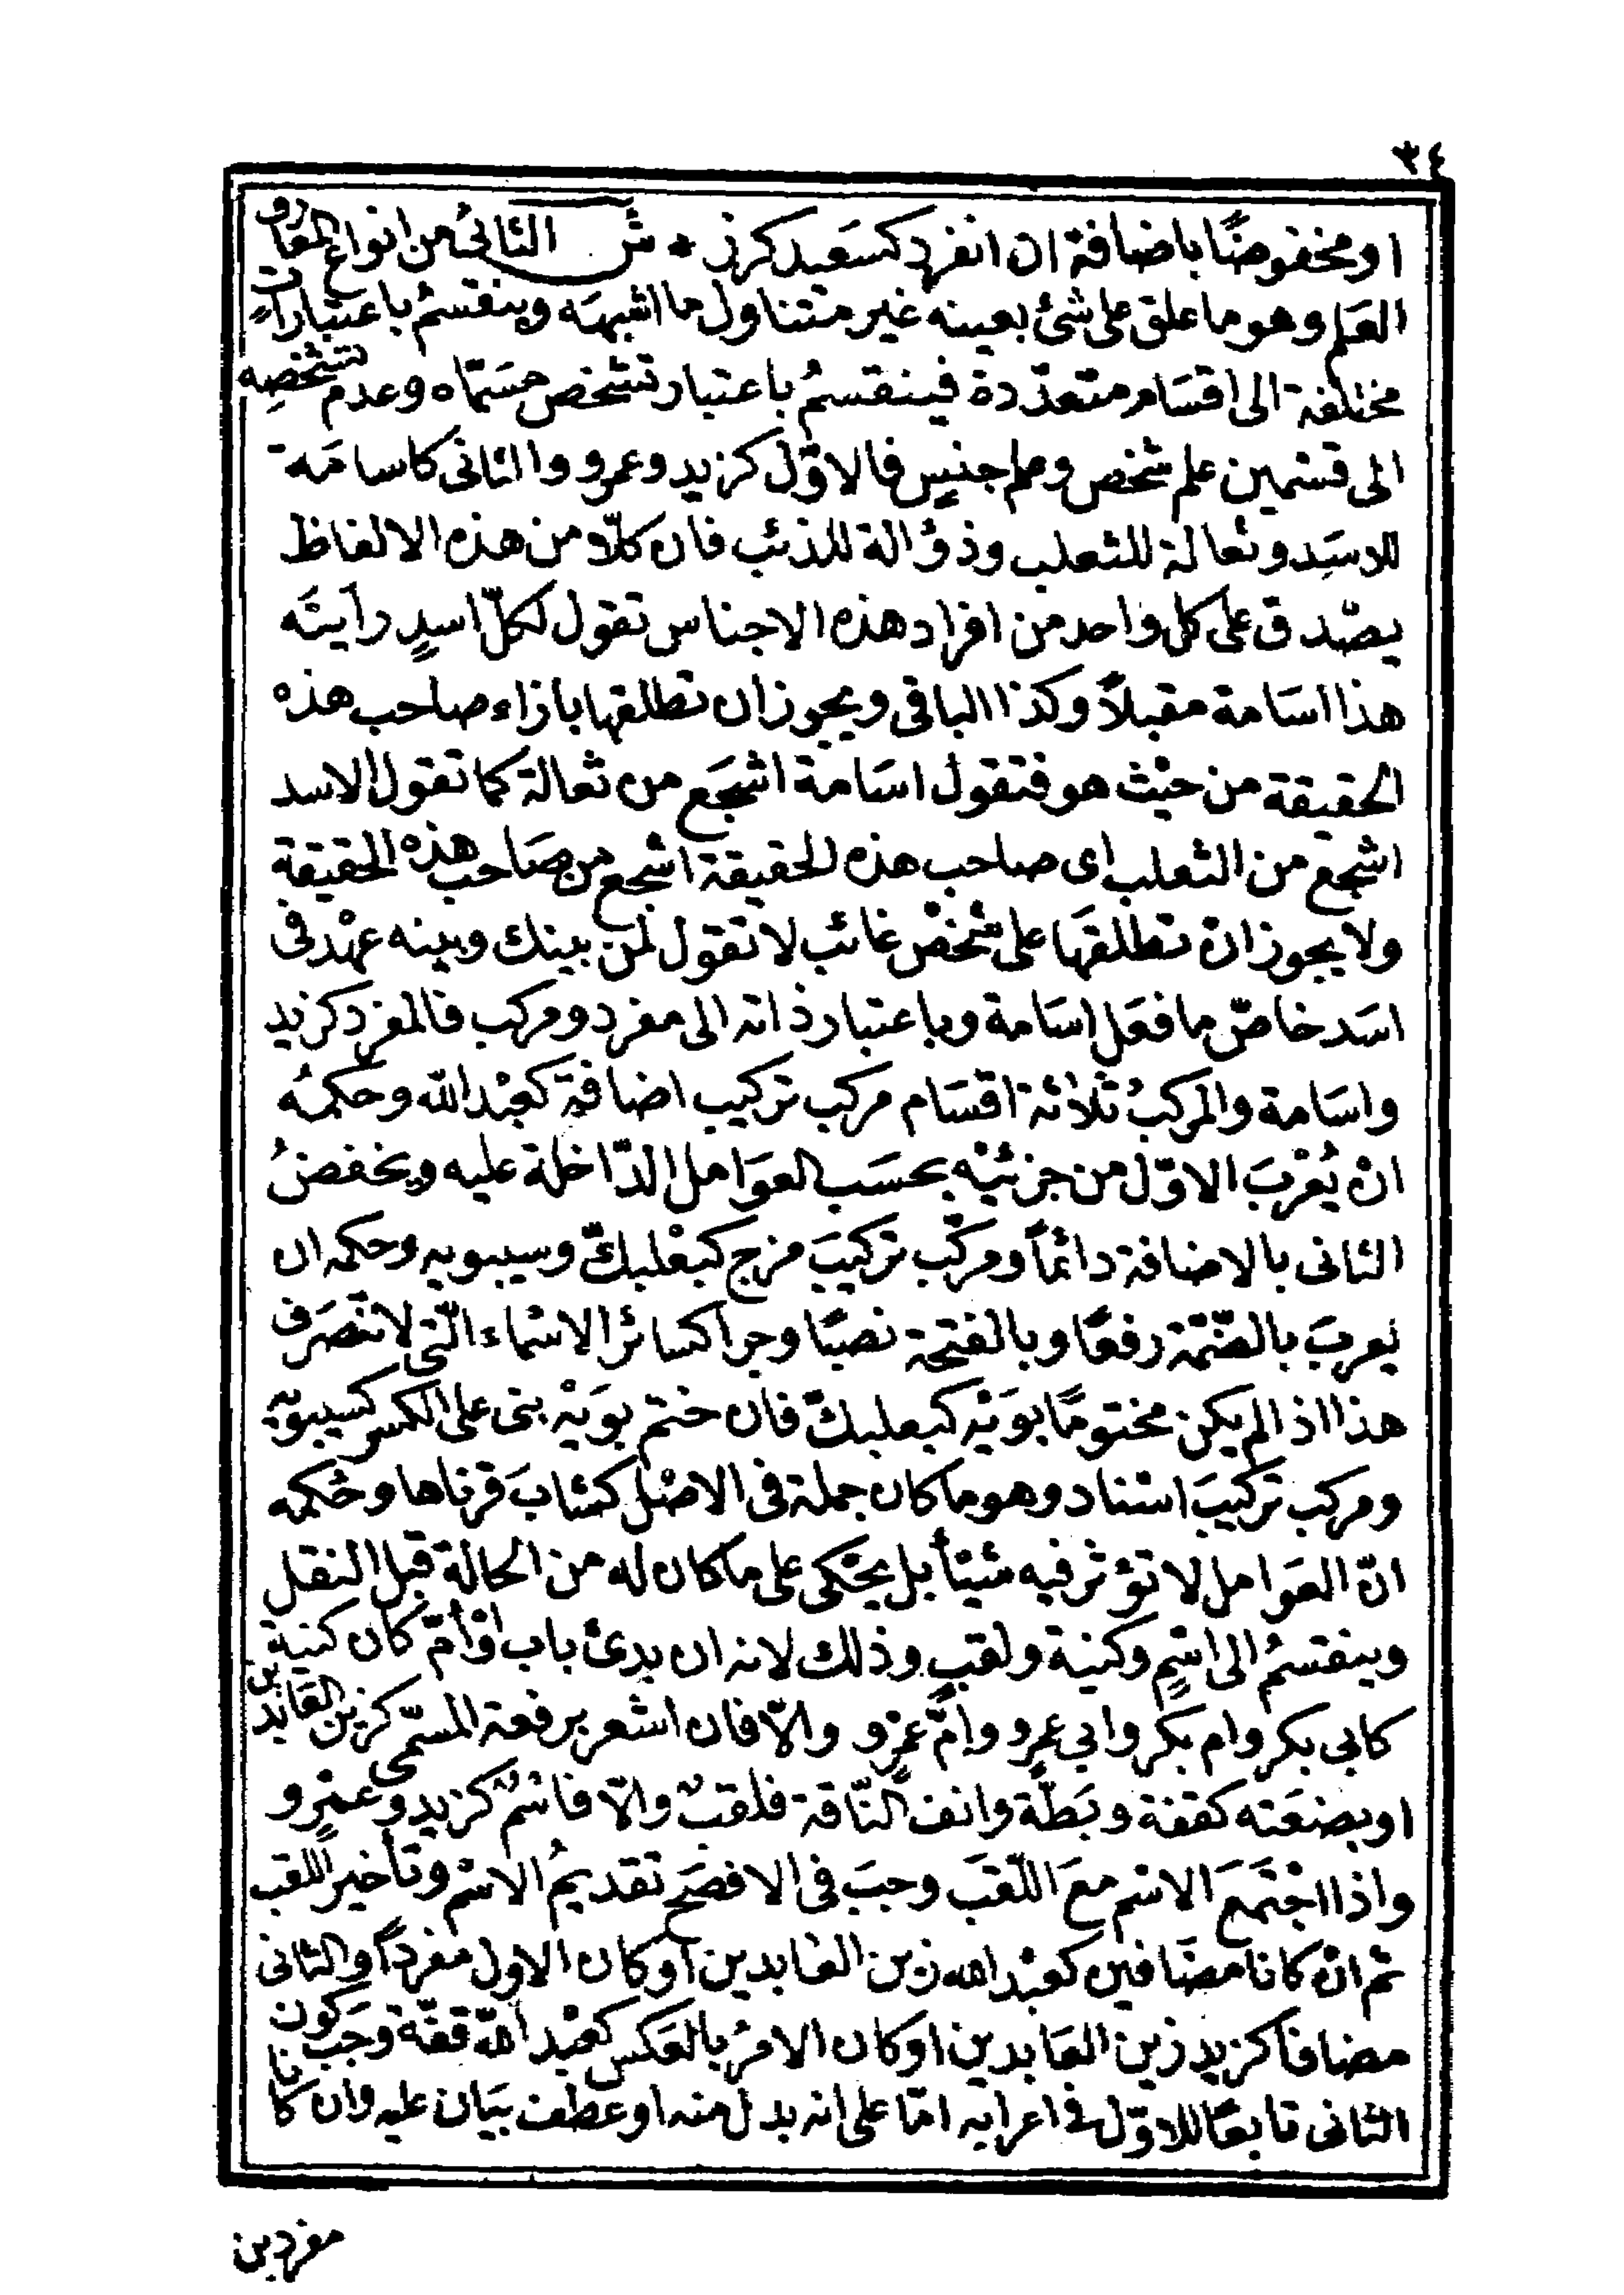 ٣٤
او مخفوضًا باضافة ان انفرد كسَعيد كرز * ش الثانىُ من انواع المعَارف
العَلم وهو ما علق على شئ بعينه غير متناول ما اشبهَه وينقسمُ باعتبارات
مختلفة الى اقسَام متعدّدة فينقسمُ باعتبار تشخص مسَمّاه وعدم تشخصِه
الى قسْمين علم شخص وعلم جنسٍ فالاوّل كزيد وعمرو والثانى كاسامَة
للاسَدِ وثعالة للثعلب وذؤالة للذئب فان كلّا من هذه الالفاظ
يصْدق على كل واحد من افراد هذه الاجناس تقول لكلّ اسدٍ رأيتَه
هذا اسَامة مقبلاً وكذا الباقى ويجوز ان تطلقها بازاء صاحب هذه
الحقيقة من حيْث هو فتقول اسَامة اشجَع من ثعالة كما تقول الاسد
اشجع من الثعلب اى صاحب هذه الحقيقة اشجع من صَاحب هذه الحقيقة
ولا يجوز ان تطلقهَا على شخْص غائب لا تقول لمن بينك وبينه عهْد فى
اسَد خاصّ ما فعَل اسَامة وباعتبار ذاته الى مفرد ومركب فالمفرد كزيد
واسَامة والمركبُ ثلاثة اقسَام مركب تركيب اضافةٍ كعبْد الله وحكمُه
انْ يُعْربَ الاوّل من جزئيْه بحسَب العوَامل الدّاخلة عليه ويخفضُ
الثانى بالاضافة دائماً ومركّب تركيبَ مزج كبعْلبكّ وسيبويه وحكمه ان
يعربَ بالضّمّة رفعًا وبالفتحة نصبًا وجرا كسائر الاسْماء الّتى لا تنْصَرف
هذا اذا لم يكن مختومًا بوَيْه كبعلبكّ فان ختم بوَيْهْ بنى على الكسر كسيبويه
ومركب تركيبَ اسْناد وهو ما كان جملة فى الاصْل كشابَ قرناها وحُكمه
انّ العوَامل لا تؤثر فيه شيئاً بل يحْكى على ما كان له من الحالة قبل النقل
وينقسمُ الى اسْمٍ وكنية ولقبٍ وذلك لانه ان بدئ باب اوْ أمّ كان كنية
كابى بكر وام بكر وابى عمرو وامّ عمْرو والّا فان اشعر برفعة المسمّى كزين العَابدين
او بضعَته كقفة وبَطّة وانف النّاقة فلقبٌ والّا فاسْمٌ كزيد وعمْرٍو
واذا اجْتمَعَ الاسْم معَ اللّقبَ وجبَ فى الافصَح تقديمُ الاسْم وتأخير اللّقب
ثم انْ كانا مضَافين كعبْد الله زين العَابدين أو كان الاول مفرداً والثانى
مضافا كزيد زين العَابدين او كان الامرُ بالعَكس كعبْد الله قفّة وجَب كون
الثانى تابعًا للاوّل فى اعرابه امّا على انه بدل منه او عطف بيَان عليه وان كانا
مفردين